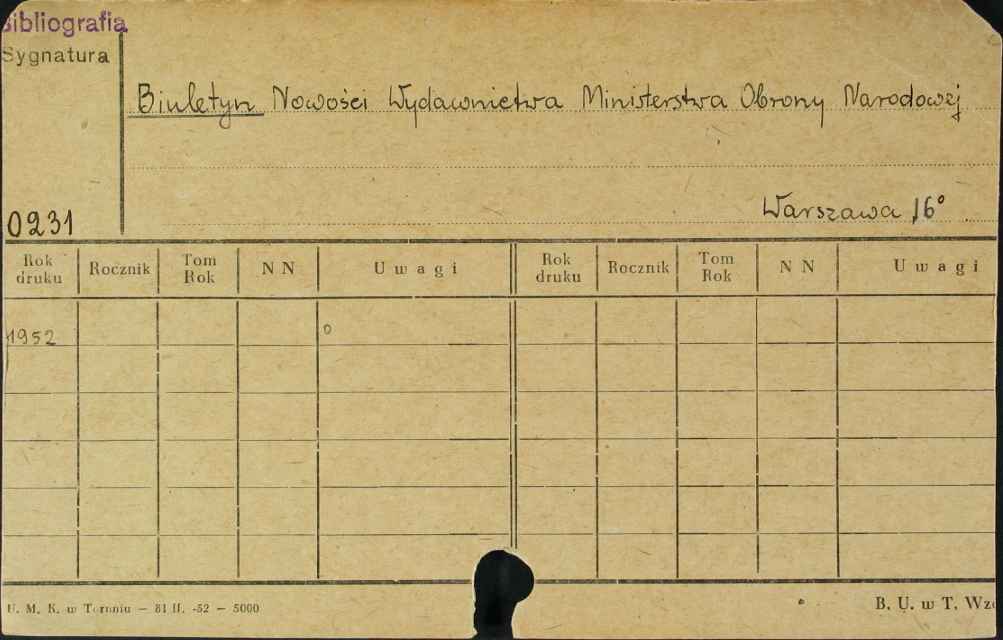 Bibliografia
Sygnatura
Biuletyn Nowości Wydawnictwa Ministerstwa Obrony Narodowej
Warszawa 16°
0231
Rok druku Rocznik Tom Rok N N Uwagi Rok druku Rocznik Tom Rok N N Uwagi
1952 0
U. M. K. w Toruniu — 81 II. -52 — 5000
B. U. w T.